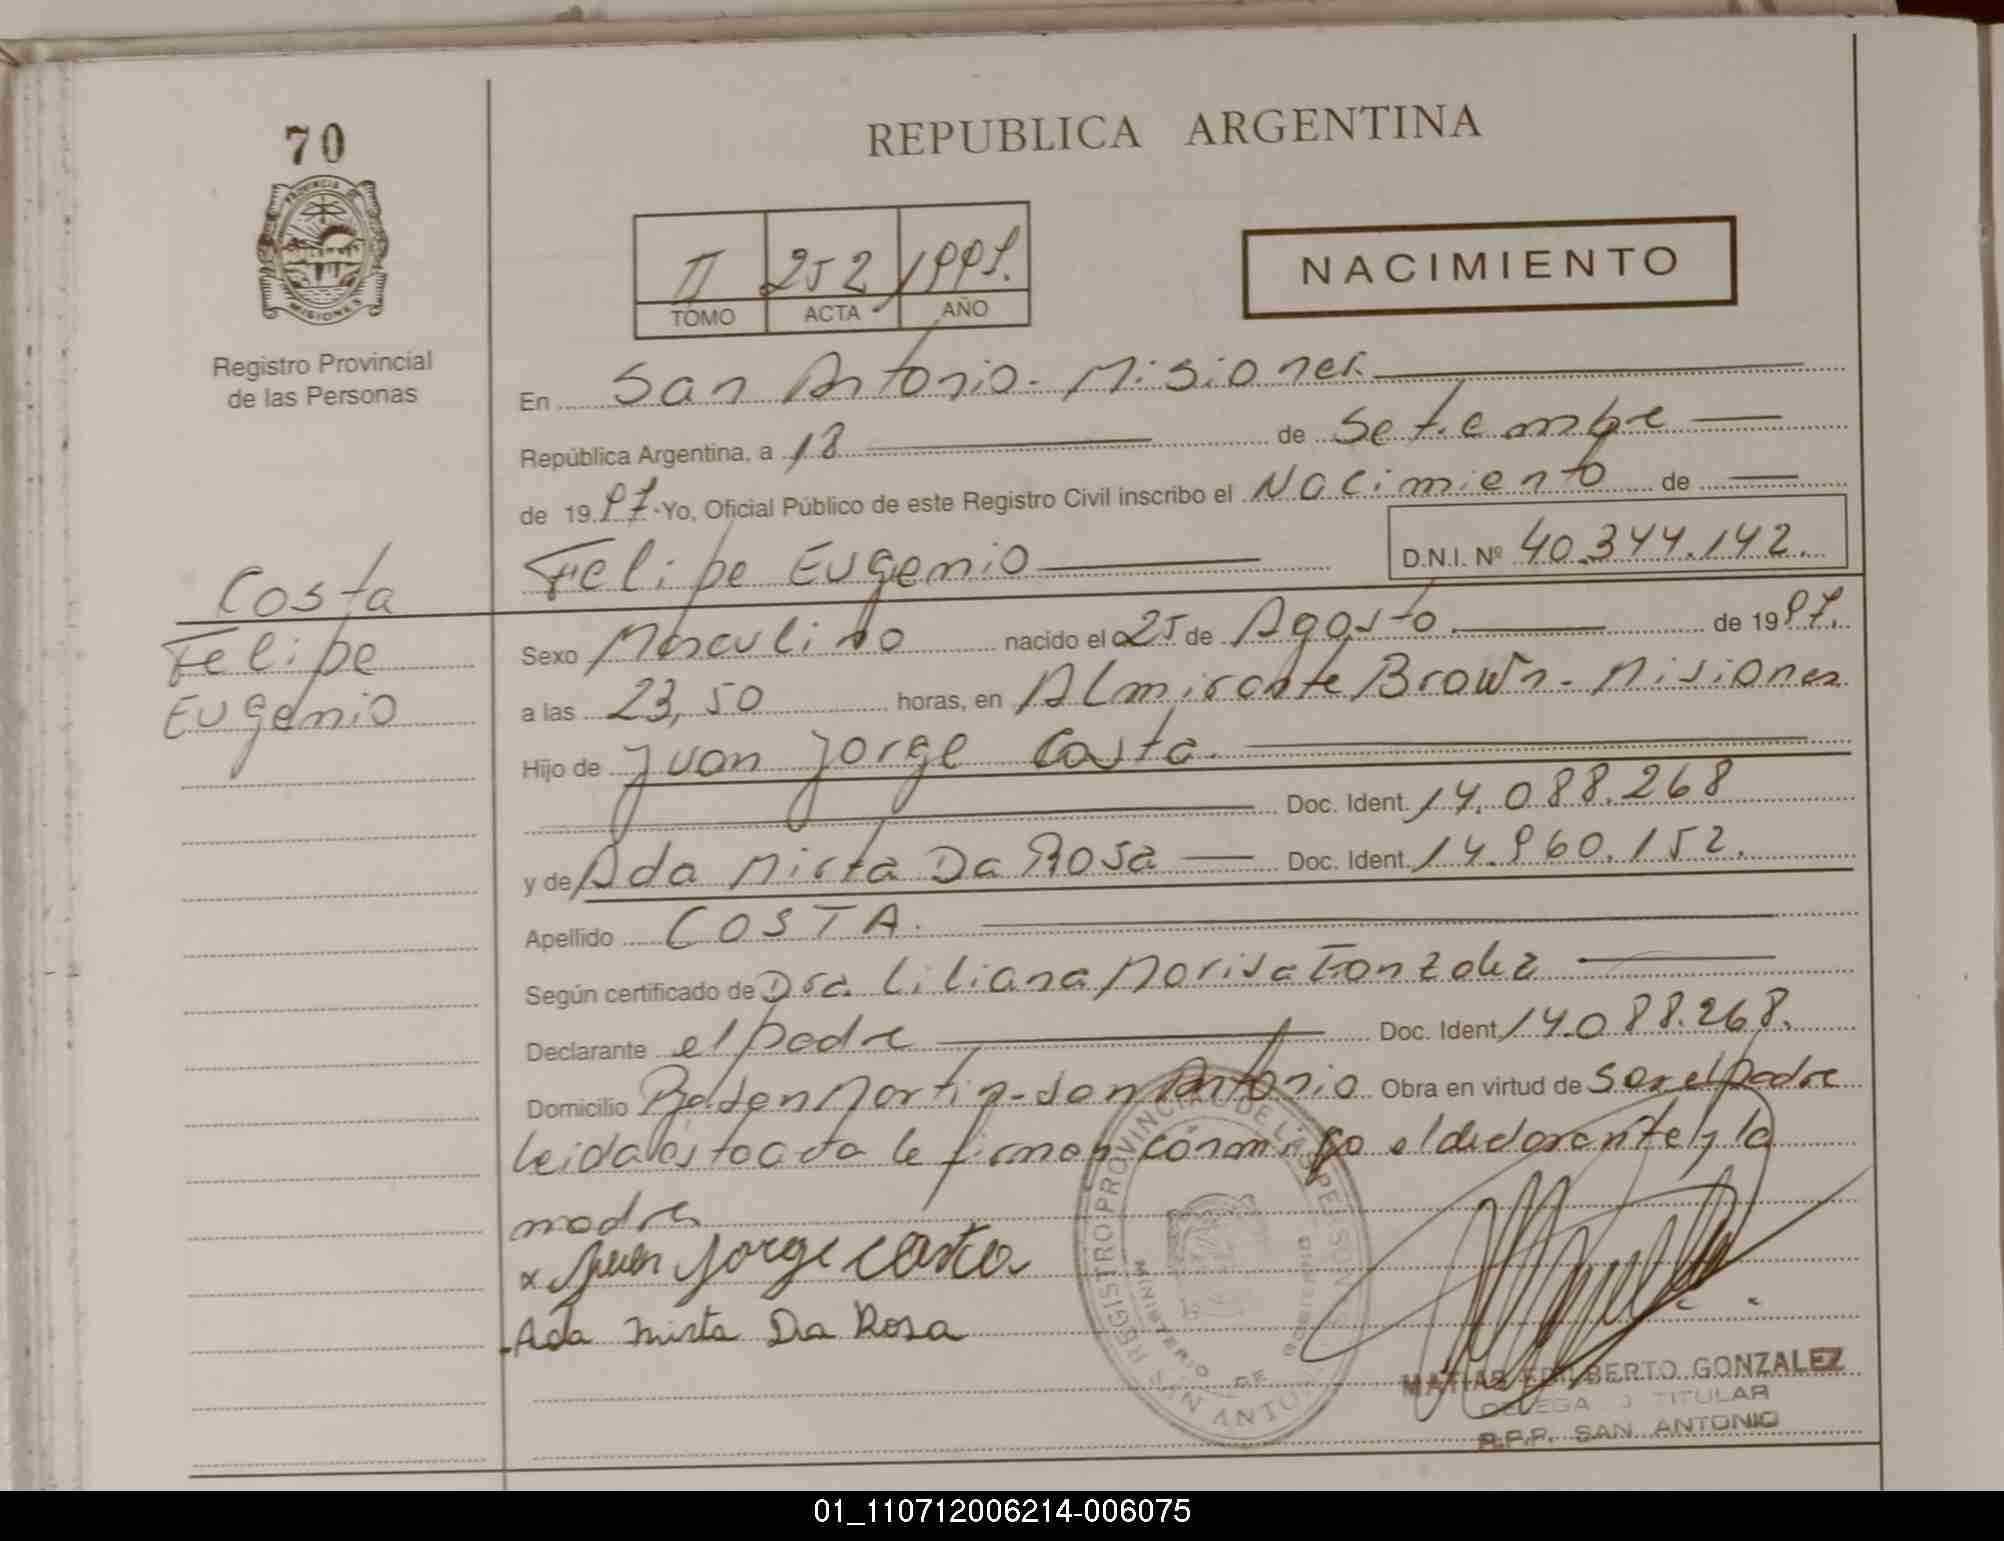 70
PROVINCIA DE
MISIONES
Registro Provincial
de las Personas
Costa
Felipe
Eugenio
REPUBLICA ARGENTINA
II 252 1997.
TOMO ACTA AÑO
NACIMIENTO
En San Antonio - Misiones
República Argentina, a 18 de Setiembre
de 1997 - Yo, Oficial Público de este Registro Civil inscribo el Nacimiento de
Felipe Eugenio D.N.I. Nº 40.344.142.
Sexo Masculino nacido el 25 de Agosto de 1997.
a las 23,50 horas, en Almirante Brown - Misiones
Hijo de Juan Jorge Costa.
Doc. Ident. 14.088.268
y de Ada Mirta Da Rosa Doc. Ident. 14.960.152.
Apellido COSTA.
Según certificado de Dra. Liliana Marisa Gonzalez
Declarante el padre Doc. Ident. 14.088.268.
Domicilio Martin - San Antonio Obra en virtud de Ser el padre
leida esta acta le firman conmigo el declarante y la
madre
x Juan Jorge Costa
Ada Mirta Da Rosa
REGISTRO PROVINCIAL DE LAS PERSONAS
MINISTERIO DE GOBIERNO
SAN ANTONIO
MATIAS EDILBERTO GONZALEZ
DELEGADO TITULAR
R.P.P. SAN ANTONIO
01_110712006214-006075